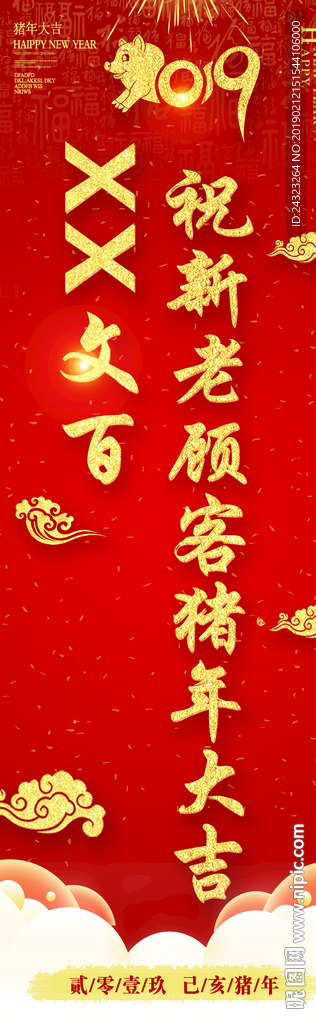 猪年大吉
HAPPY NEW YEAR
DFADFD
DKLJAKKSL DKY
ADDFH WIS
NRIWS
2019
祝新老顾客猪年大吉
XX文百
贰/零/壹/玖 己/亥/猪/年
ID:24323264 NO:20190212151544106000
昵图网 www.nipic.com